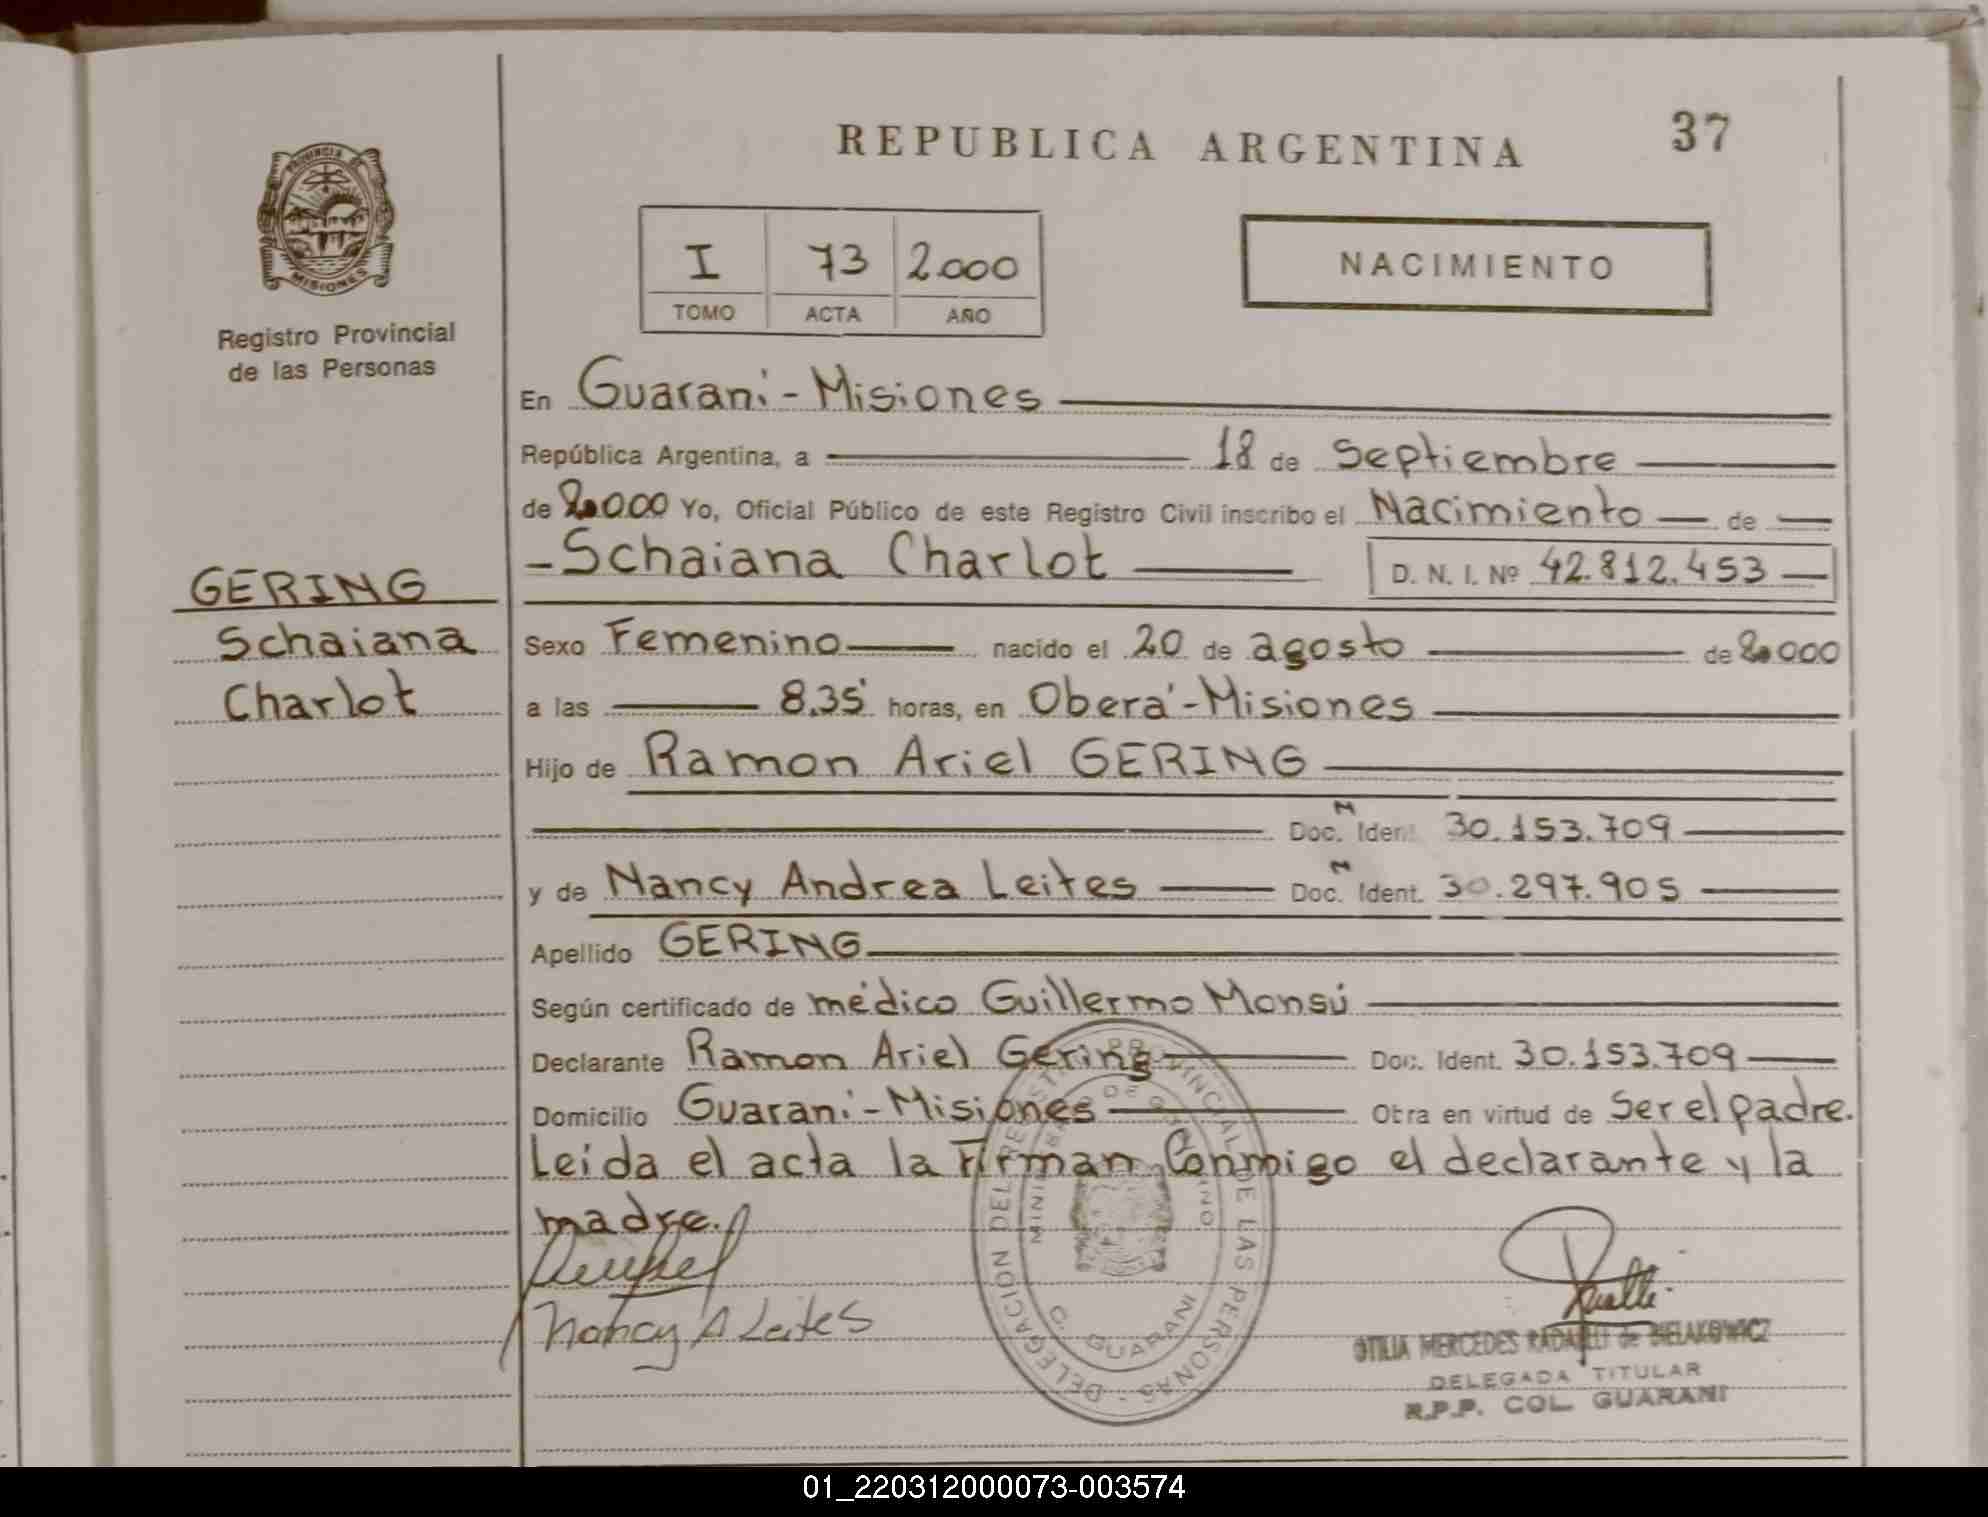 PROVINCIA DE
MISIONES
Registro Provincial
de las Personas
GERING
Schaiana
Charlot
REPUBLICA ARGENTINA
37
I 73 2.000
TOMO ACTA AÑO
NACIMIENTO
En Guaraní - Misiones
República Argentina, a 18 de Septiembre
de 2.000 Yo, Oficial Público de este Registro Civil inscribo el Nacimiento de
- Schaiana Charlot D. N. I. Nº 42.812.453
Sexo Femenino nacido el 20 de agosto de 2.000
a las 8.35 horas, en Oberá - Misiones
Hijo de Ramon Ariel GERING
Doc. Ident. 30.153.709
y de Nancy Andrea Leites Doc. Ident. 30.297.905
Apellido GERING
Según certificado de médico Guillermo Monsú
Declarante Ramon Ariel Gering Doc. Ident. 30.153.709
Domicilio Guaraní - Misiones Otra en virtud de Ser el padre.
Leída el acta la Firman Conmigo el declarante y la
madre.
Nancy A Leites
DELEGACION DEL REGISTRO PROVINCIAL DE LAS PERSONAS -
C. GUARANI
OTILIA MERCEDES RADAELLI de BIELAKOWICZ
DELEGADA TITULAR
R.P.P. COL. GUARANI
01_220312000073-003574